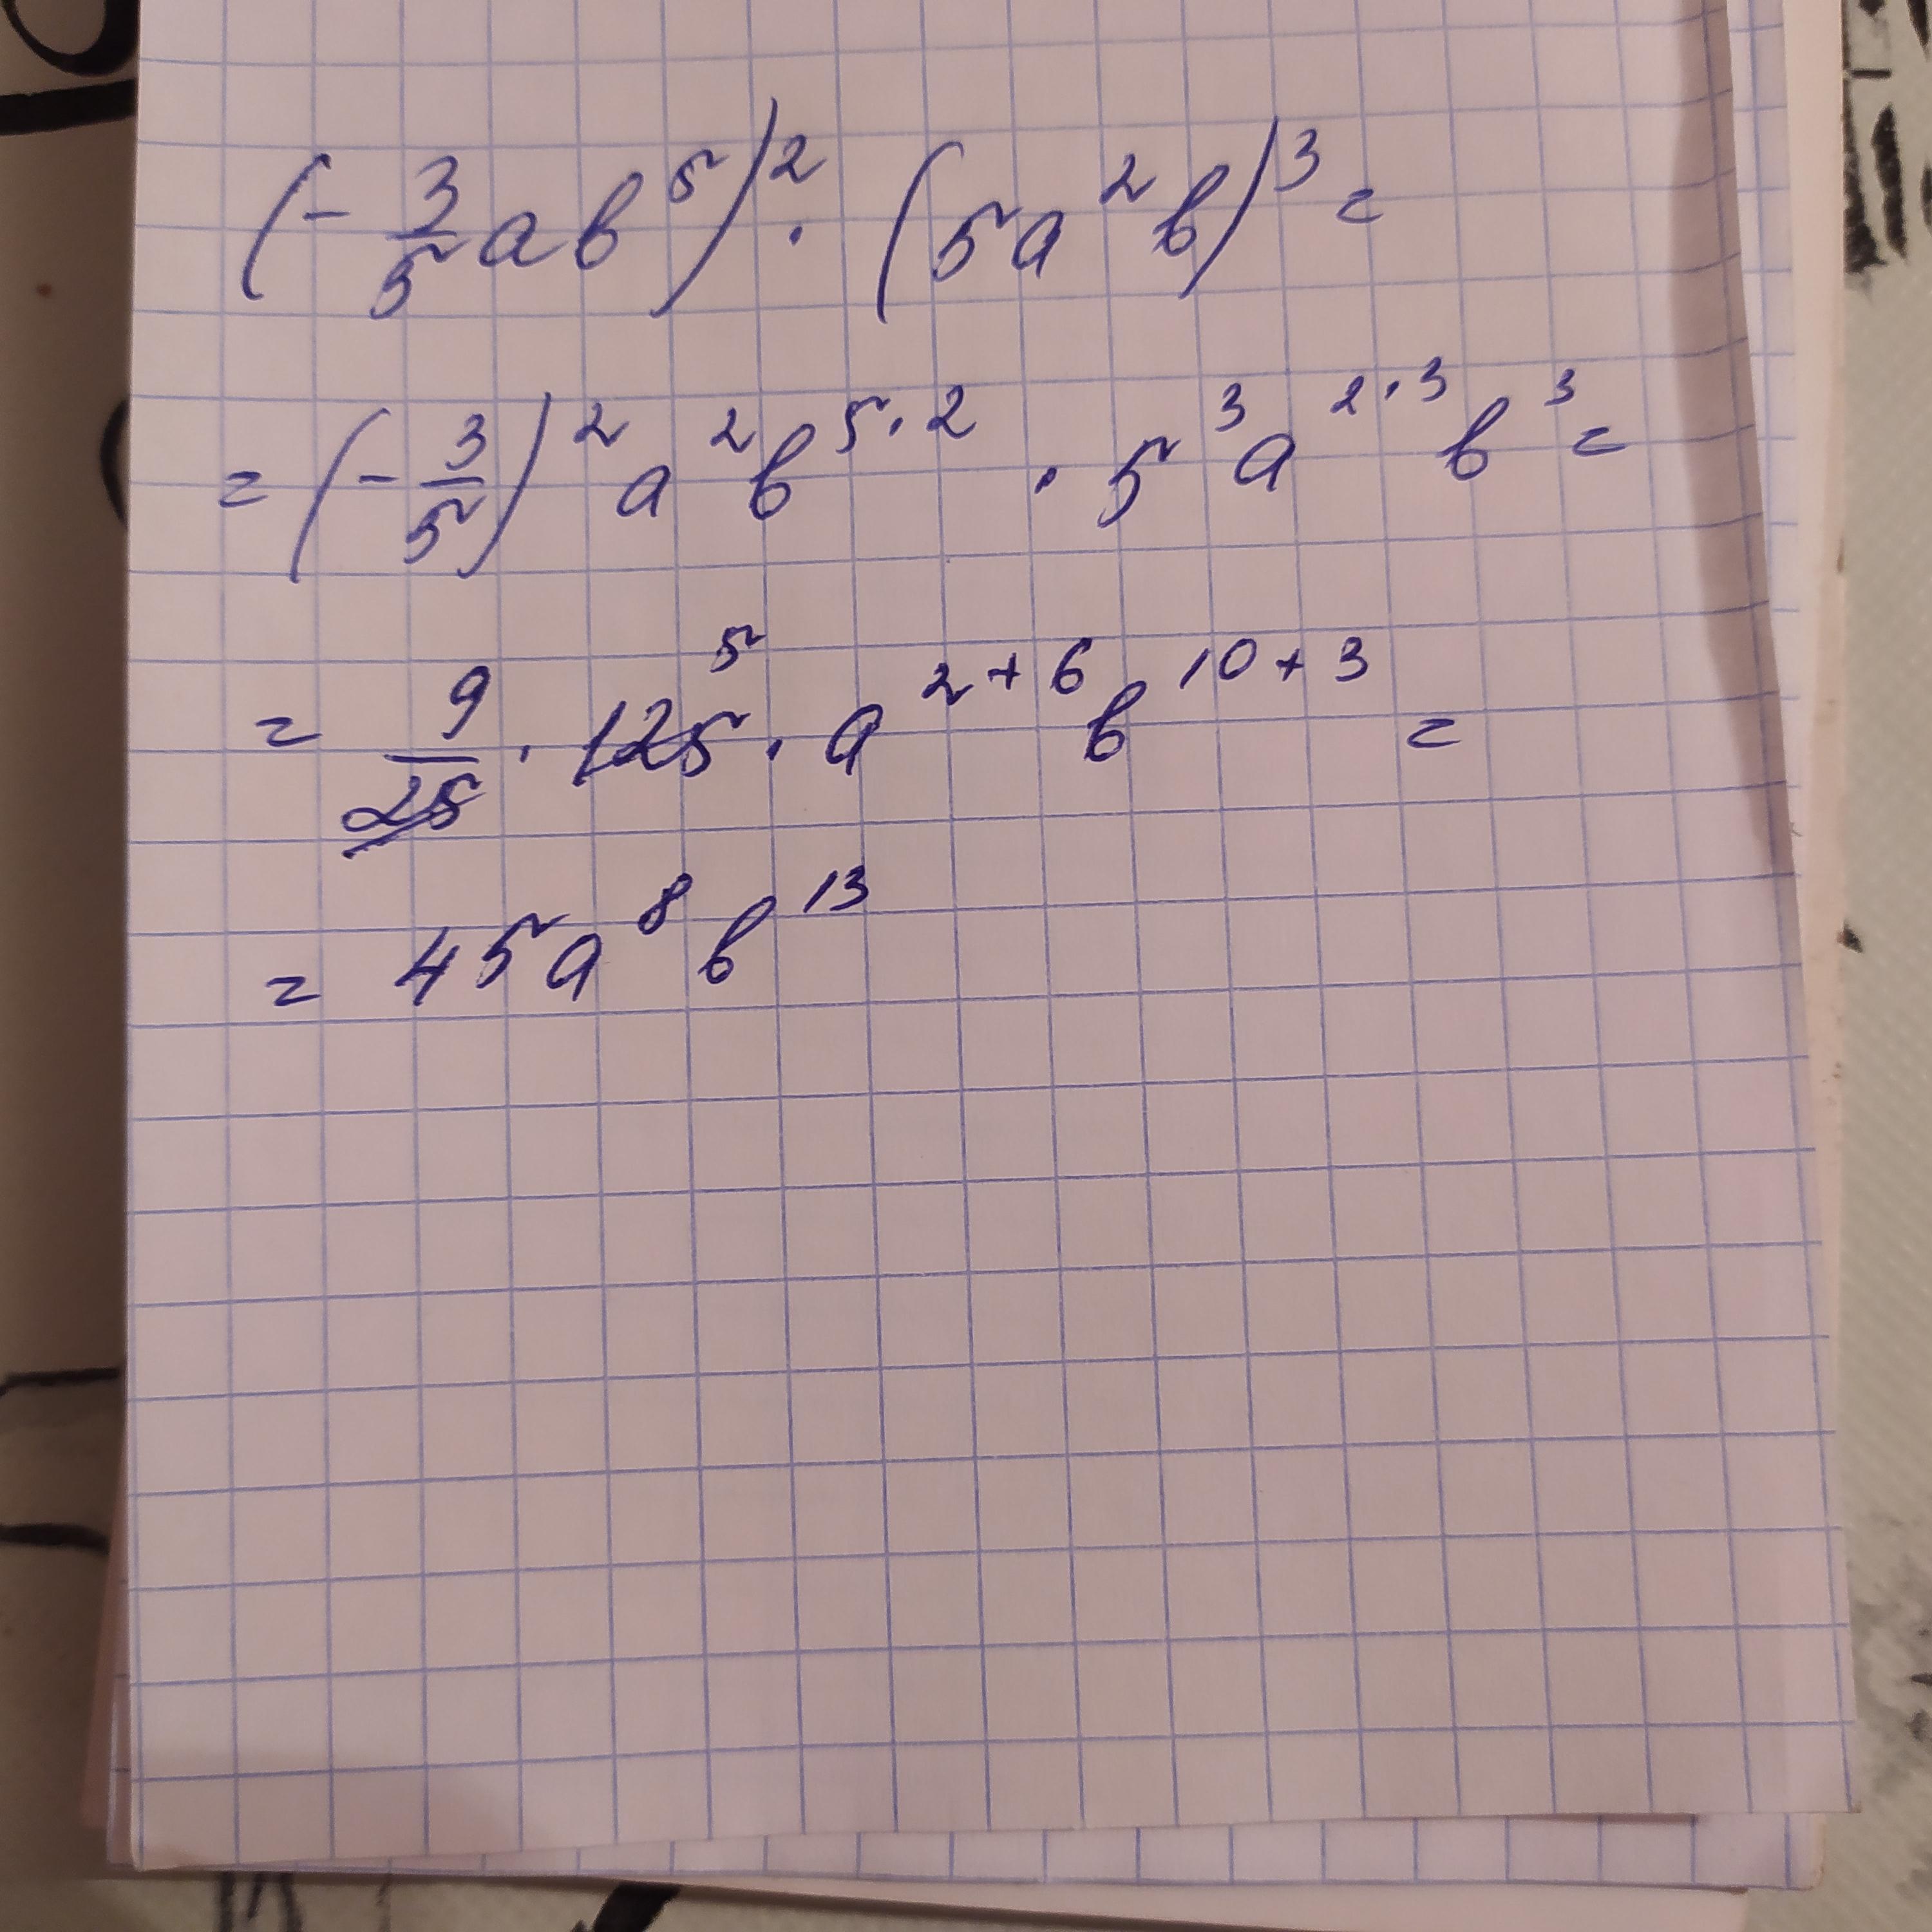 (-3/5 ab⁵)² · (5a²b)³ =
= (-3/5)² a² b⁵·² · 5³ a²·³ b³ =
= 9/25 · 125⁵ · a²⁺⁶ b¹⁰⁺³ =
= 45a⁸b¹³